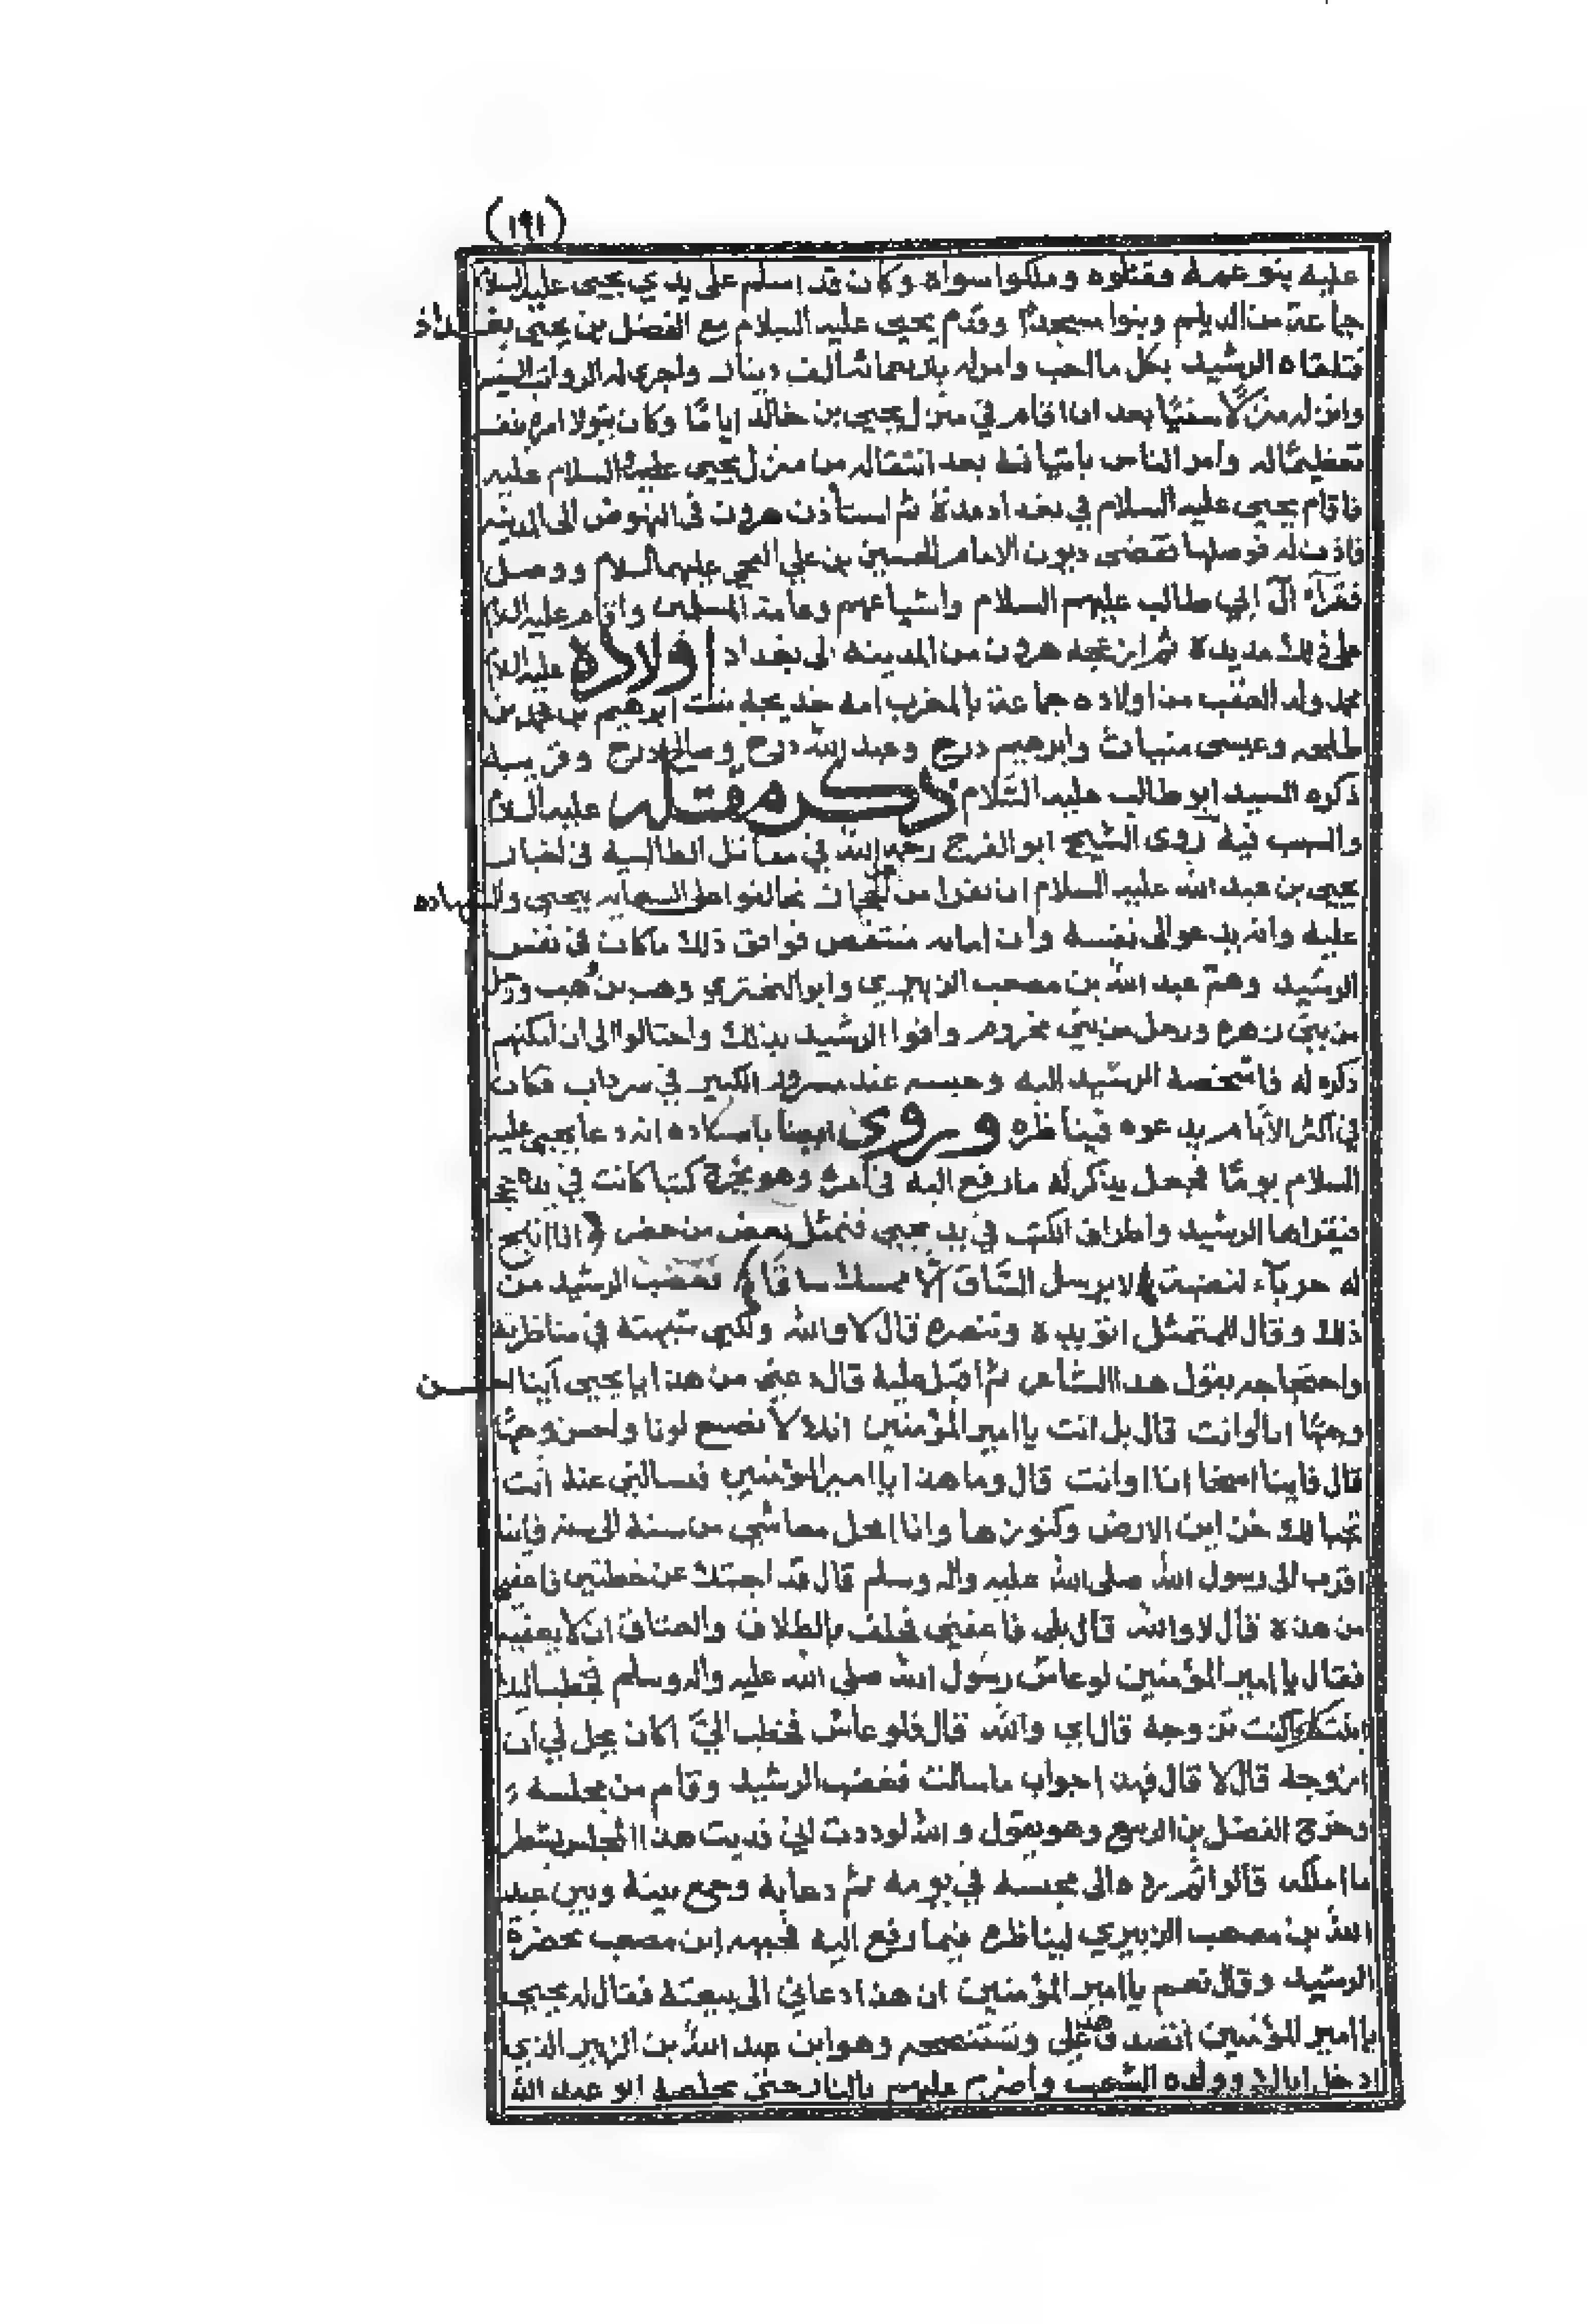 (١٩١)
عليه بنو عمه وقتلوه وملكوا سواه وكان قد اسلم على يدي يحيى عليه السلام
جماعة من الديلم وبنوا مسجدا وقدم يحيى عليه السلام مع الفضل بن يحيى بغداد
فتلقاه الرشيد بكل ما احب وامر له باربعمائة الف دينار واجرى له
وانزله منزلا سنيا بعد ان اقام في منزل يحيى بن خالد اياما وكان يتولا امره بنفسه
تعظيما له وامر الناس باتيانه بعد انتقاله من منزل يحيى عليه السلام عليه
فاقام يحيى عليه السلام في بغداد مدة ثم استأذن هرون في النهوض الى المدينه
فاذن له فوصلها فقضى ديون الامام الحسين بن علي الفخي عليهما السلام ووصل
فقرآء آل ابي طالب عليهم السلام واشياعهم وعامة المسلمين واقام عليه السلام
على ذلك مديدة ثم ازعجه هرون من المدينه الى بغداد اولاده عليه السلام
محمد وله العقب من اولاده جماعة بالمغرب امه خديجه بنت ابرهيم بن محمد بن
طلحه وعيسى وابرهيم درج وعبد الله درج وصالح درج وقريبه
ذكره السيد ابو طالب عليه السلام ذكر مقتله عليه السلام
والسبب فيه روى الشيخ ابو الفرج رحمه الله في مقاتل الطالبيه في اخبار
يحيى بن عبد الله عليه السلام ان نفرا من اهل الحجاز تحالفوا على السعايه بيحيى والشهاده
عليه وانه يدعو الى نفسه وان امانه منتقض فوافق ذلك ما كان في نفس
الرشيد وهم عبد الله بن مصعب الزبيري وابو البختري وهب بن وهب ورجل
من بني زهره ورجل من بني مخزوم وافوا الرشيد بذلك واحتالوا الى ان امكنهم
ذكره له فاشخصه الرشيد اليه وحبسه عند مسرور الكبير في سرداب فكان
في اكثر الايام يدعوه فيناظره وروى ايضا باسناده انه دعا بيحيى عليه
السلام يوما فجعل يذكر له ما رفع اليه في امره وهو يخرج كتبا كانت في يده
فيقراها الرشيد واطراف الكتب في يد يحيى فتمثل بعض من حضر (انا اتيح
له حرباء تنضبة) لا يرسل الساق الا ممسكا ساقا) فغضب الرشيد من
ذلك وقال للمتمثل اتؤيده وتنصره قال لا والله ولكني شبهته في مناظرته
واحتجاجه بقول هذا الشاعر ثم اقبل عليه قال دعني من هذا يا يحيى اينا احسن
وجها انا او انت قال بل انت يا امير المؤمنين انك لانصع لونا واحسن وجها
قال فاينا اسخا انا او انت قال وما هذا يا امير المؤمنين فسالني عنه انت
تجبا لك خزاين الارض وكنوزها وانا اتمحل معاشي من سنة الى سنه فاينا
اقرب الى رسول الله صلى الله عليه واله وسلم قال قد اجبتك عن خطتين فاعفني
من هذه قال لا والله قال بلى فاعفني فحلف بالطلاق والعتاق ان لا يعفيه
فقال يا امير المؤمنين لو عاش رسول الله صلى الله عليه واله وسلم فخطب اليك
ابنتك اكنت تزوجه قال اي والله قال فلو عاش فخطب الي اكان يحل لي ان
ازوجه قال لا قال فهذا جواب ما سالت فغضب الرشيد وقام من مجلسه
وخرج الفضل بن الربيع وهو يقول والله لوددت اني فديت هذا المجلس بشطر
ما املك قالوا ثم رده الى محبسه في يومه ثم دعا به وجمع بينه وبين عبد
الله بن مصعب الزبيري ليناظره فيما رفع اليه فجبهه ابن مصعب بحضرة
الرشيد وقال نعم يا امير المؤمنين ان هذا دعاني الى بيعته فقال له يحيى
يا امير المؤمنين اتصدق هذا علي وتستنصحه وهو ابن عبد الله بن الزبير الذي
ادخل اباك وولده الشعب واضرم عليهم بالنار حتى تخلصه ابو عبد الله